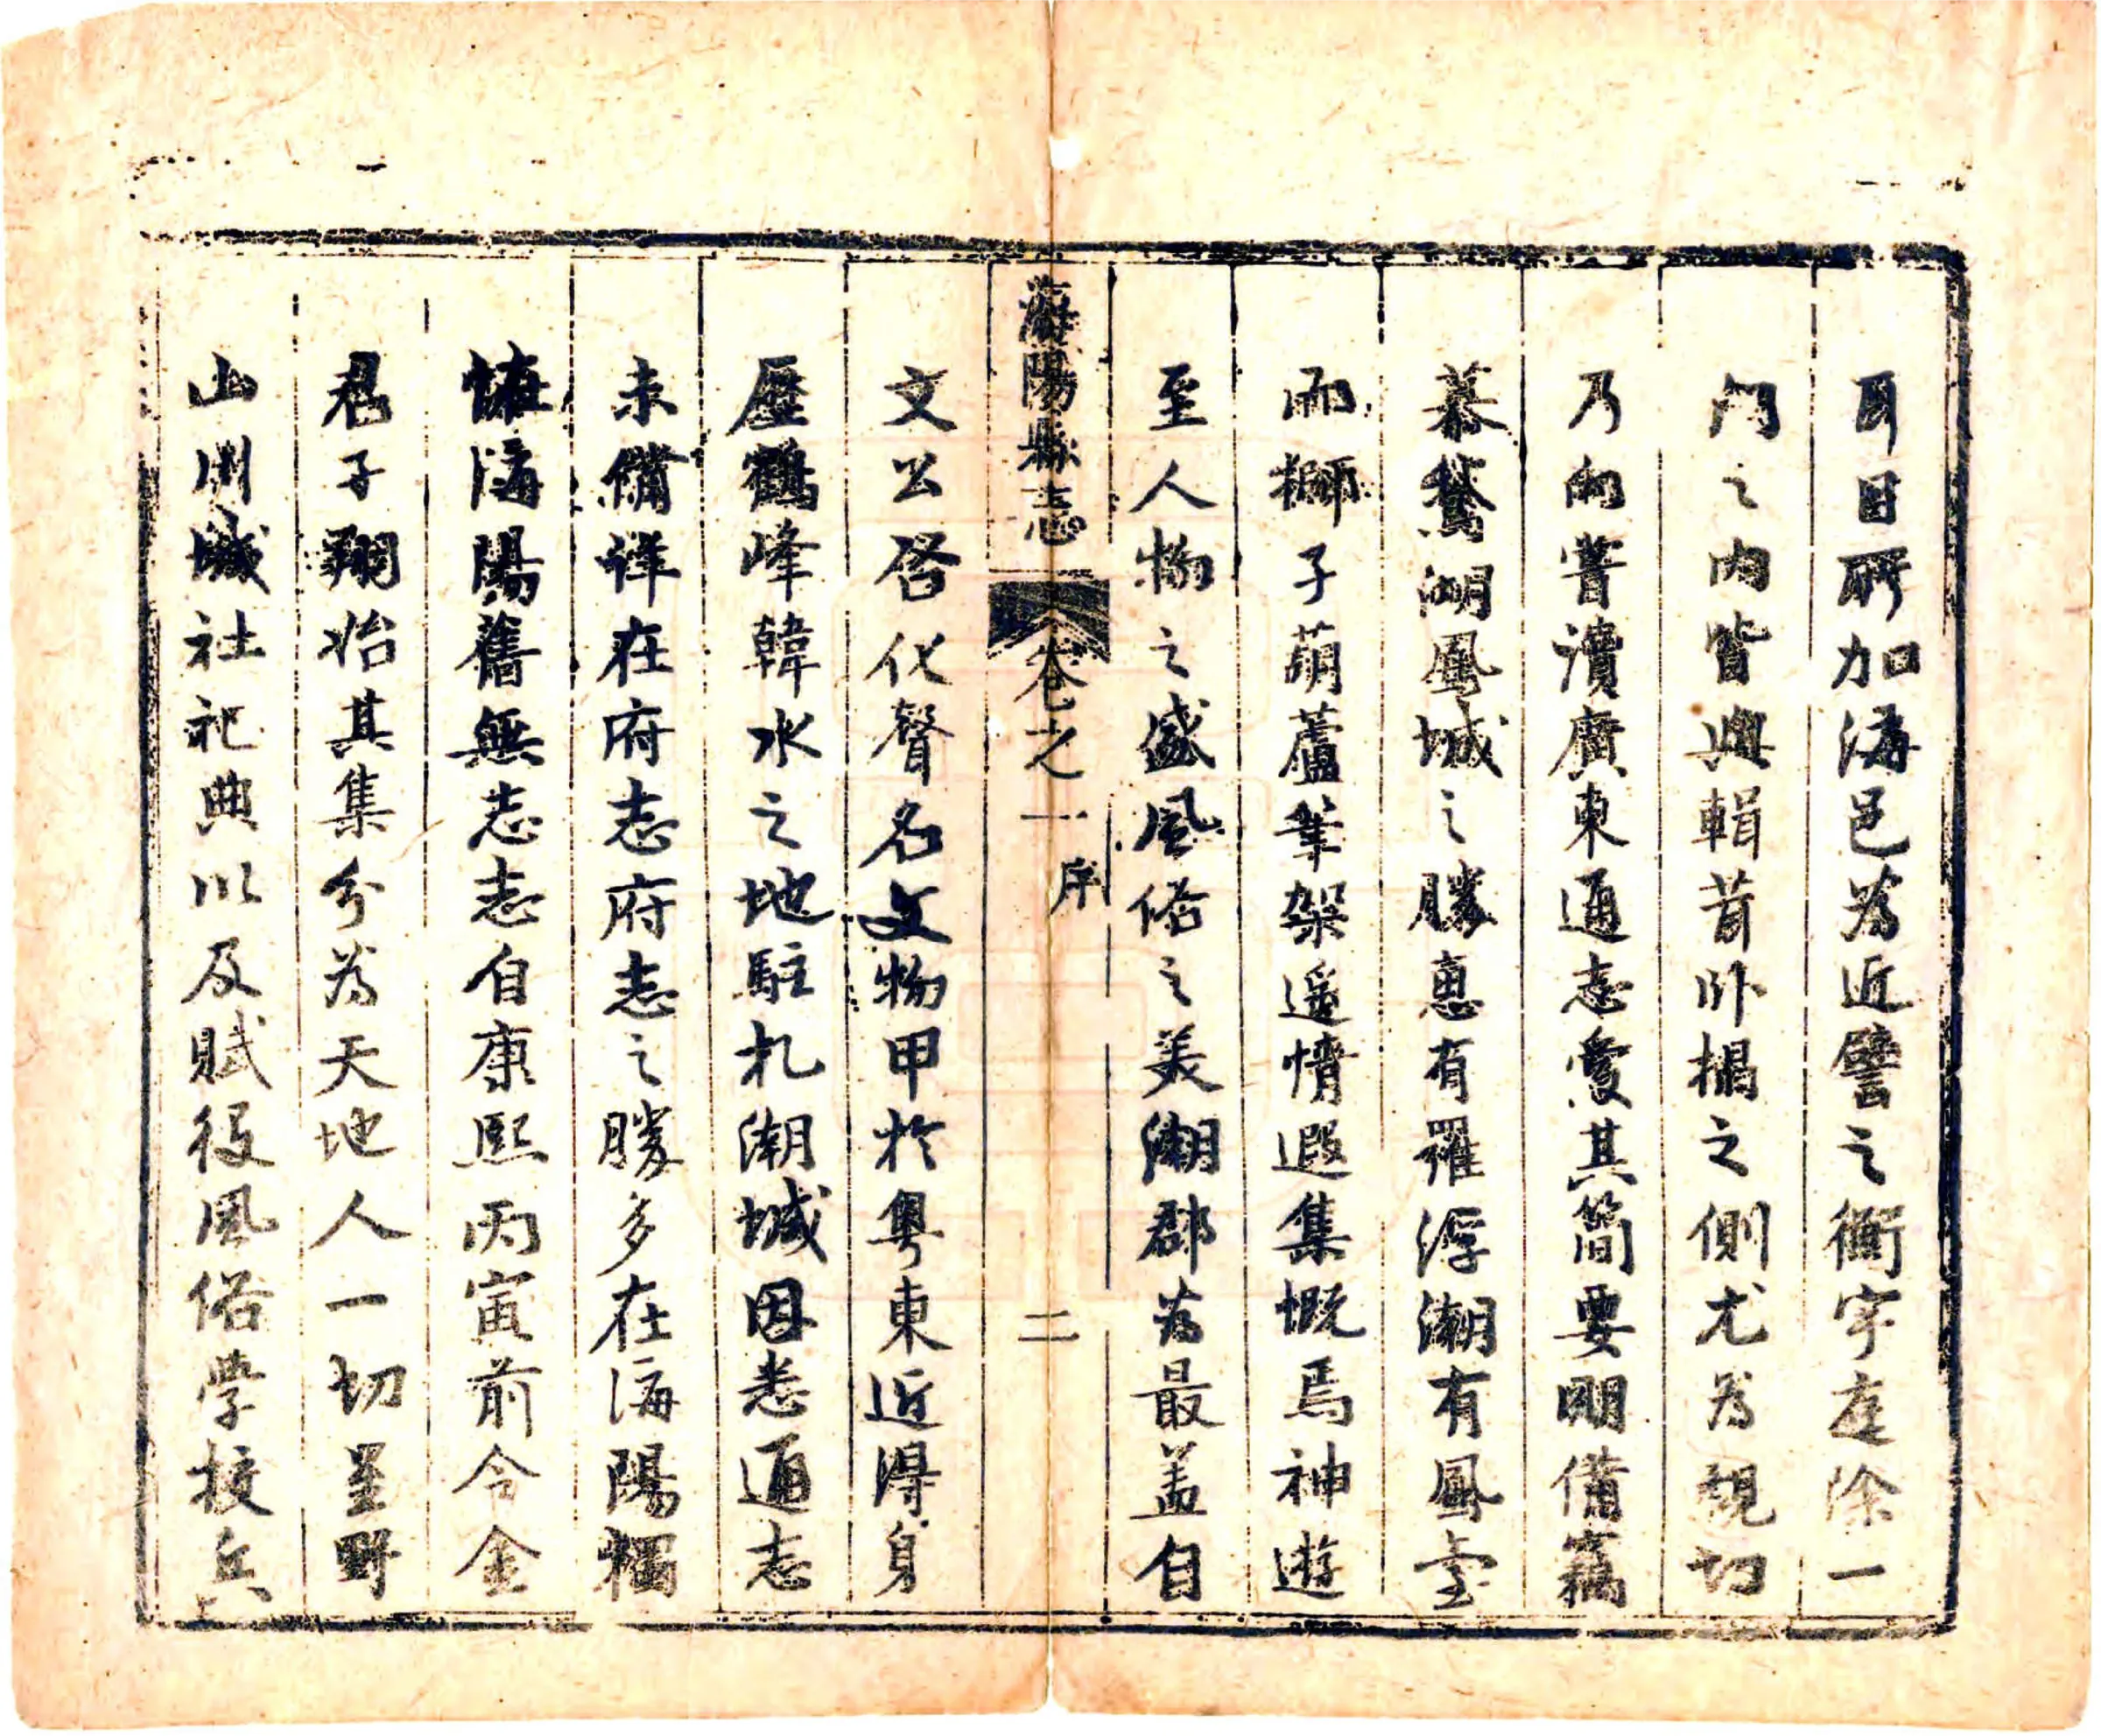 耳目所加海邑為近譬之衡宇庭除一
門之内皆輿輯昔卧榻之側尤為親切
乃向嘗瀆廣東通志愛其簡要明備竊
慕鵞湖鳳城之勝惠有羅浮潮有鳳臺
而獅子葫蘆筆架遥情遐集慨焉神遊
至人物之盛風俗之美潮郡為最盖自
海陽縣志 卷之一 序 二
文公啓化聲名文物甲於粤東近得身
歷鶴峰韓水之地駐札潮城因悉通志
未備详在府志府志之勝多在海陽獨
慨海陽舊無志志自康熙丙寅前令金
君子翔始其集分為天地人一切星野
山川城社祀典以及賦役風俗学校兵